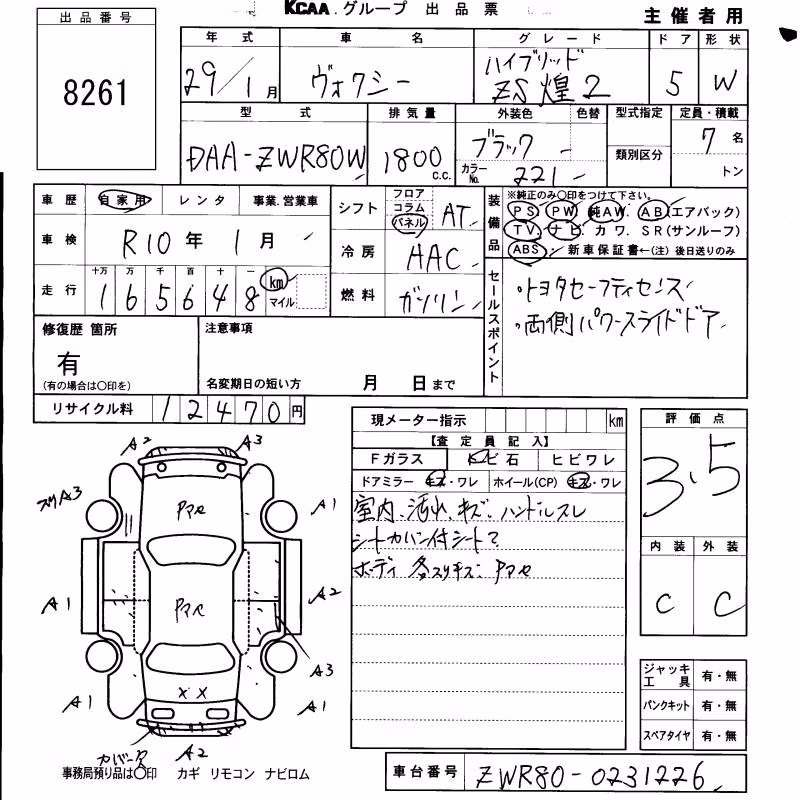 KCAA グループ 出品票
主催者用
出品番号
8261
年式 車名 グレード ドア 形状
29/1月 ヴォクシー ハイブリッド ZS煌2 5 W
型式 排気量 外装色 色替 型式指定 定員・積載
DAA-ZWR80W 1800 c.c. ブラック カラーNo. 221 類別区分 7名 トン
車歴 自家用 レンタ 事業.営業車
シフト フロア コラム パネル AT
装備品 ※純正のみ○印をつけて下さい。
PS. PW. 純AW. AB(エアバック)
TV. ナビ. カワ. SR(サンルーフ)
ABS 新車保証書←(注) 後日送りのみ
車検 R10年 1月
冷房 AAC
走行 十万 万 千 百 十 一
165648 km マイル
燃料 ガソリン
セールスポイント
・トヨタセーフティセンス
・両側パワースライドドア
修復歴 箇所
有
(有の場合は○印を)
注意事項
名変期日の短い方 月 日まで
リサイクル料 12470円
現メーター指示 km
【査定員記入】
Fガラス トビ石 ヒビワレ
ドアミラー キズ・ワレ ホイール(CP) キズ・ワレ
室内、汚れ、キズ、ハンドルスレ
シートカバー付シート?
ボディ 各スリキズ
評価点
3.5
内装 外装
C C
A2 A3
スリA3 A1
A1 A2
A3
A1 A1
XX
A2
ジャッキ工具 有・無
パンクキット 有・無
スペアタイヤ 有・無
事務局預り品は○印 カギ リモコン ナビロム
車台番号 ZWR80-0231226